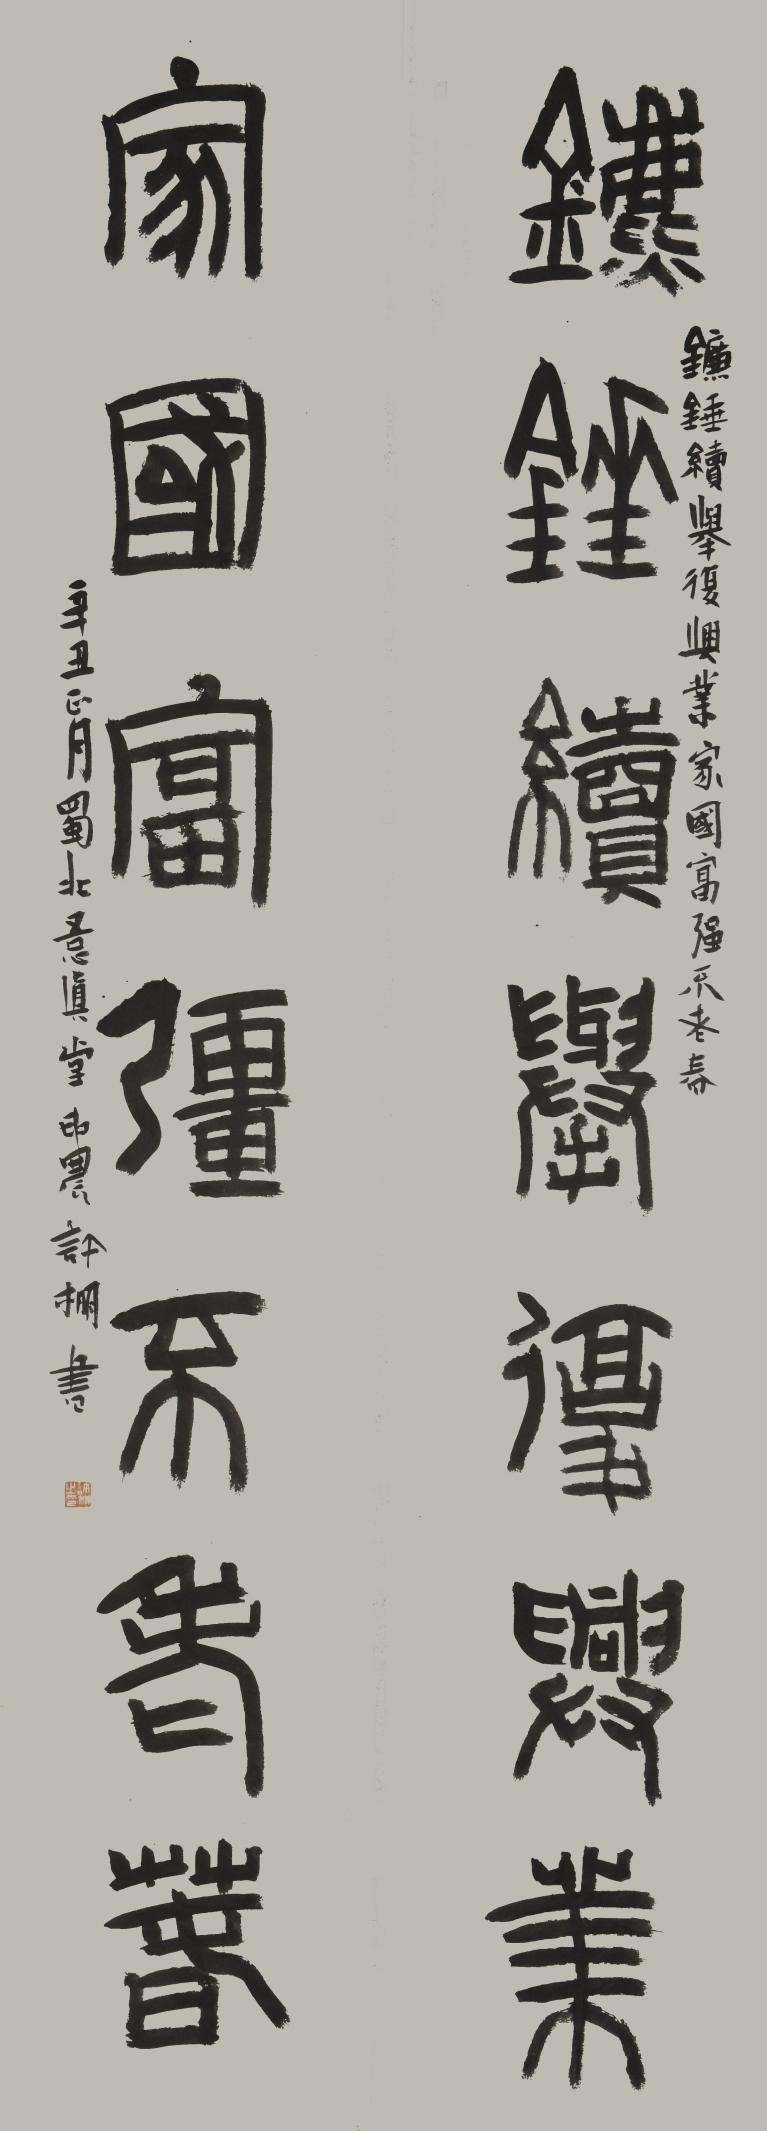 鐮錘續舉復興業
鐮錘續舉復興業家國富强不老春
家國富彊不老春
辛丑正月蜀北意眞堂農許棚書